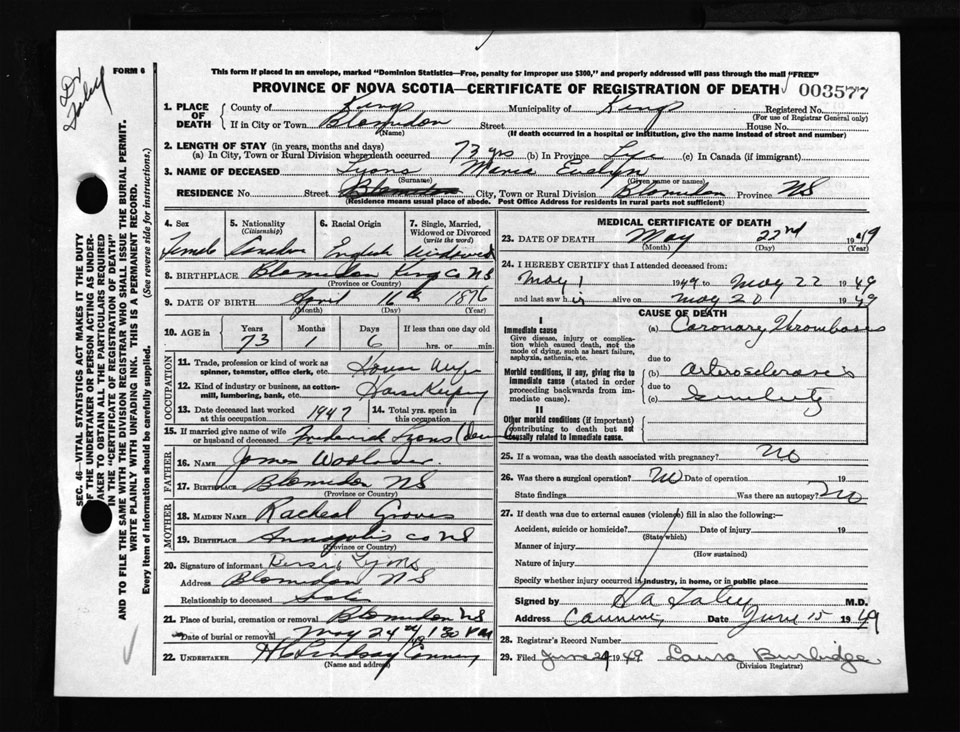 Dr Foley
FORM 6
This form if placed in an envelope, marked "Dominion Statistics—Free, penalty for improper use $300," and properly addressed will pass through the mail "FREE"
PROVINCE OF NOVA SCOTIA—CERTIFICATE OF REGISTRATION OF DEATH 003577
1. PLACE OF DEATH County of Kings Municipality of Kings Registered No.
(For use of Registrar General only)
If in City or Town Blomidon Street House No.
(Name) (If death occurred in a hospital or institution, give the name instead of street and number)
2. LENGTH OF STAY (in years, months and days)
(a) In City, Town or Rural Division where death occurred 73 yrs (b) In Province Life (c) In Canada (if immigrant)
3. NAME OF DECEASED Lyons Maria Evelyn
(Surname) (Given name or names)
RESIDENCE No. Street Blomidon City, Town or Rural Division Blomidon Province NS
(Residence means usual place of abode. Post Office Address for residents in rural parts not sufficient)
4. Sex 5. Nationality (Citizenship) 6. Racial Origin 7. Single, Married, Widowed or Divorced (write the word)
Female Canadian English Widowed
8. BIRTHPLACE Blomidon Kings Co NS
(Province or Country)
9. DATE OF BIRTH April 16th 1876
(Month) (Day) (Year)
10. AGE in Years Months Days If less than one day old
73 1 6 hrs. or min.
OCCUPATION
11. Trade, profession or kind of work as spinner, teamster, office clerk, etc. House Wife
12. Kind of industry or business, as cotton-mill, lumbering, bank, etc. House Keeping
13. Date deceased last worked at this occupation 1947 14. Total yrs. spent in this occupation
15. If married give name of wife or husband of deceased Frederick Lyons
FATHER
16. NAME James
17. BIRTHPLACE Blomidon NS
(Province or Country)
MOTHER
18. MAIDEN NAME Racheal Groves
19. BIRTHPLACE Annapolis Co NS
(Province or Country)
20. Signature of informant Lyons
Address Blomidon NS
Relationship to deceased
21. Place of burial, cremation or removal Blomidon NS
Date of burial or removal May 24th 1 30 PM
22. UNDERTAKER H C Lindsay
(Name and address)
MEDICAL CERTIFICATE OF DEATH
23. DATE OF DEATH May 22nd 1949
(Month) (Day) (Year)
24. I HEREBY CERTIFY that I attended deceased from:
May 1 1949 to May 22 1949
and last saw h is alive on May 20 1949
CAUSE OF DEATH
I
Immediate cause
Give disease, injury or complication which caused death, not the mode of dying, such as heart failure, asphyxia, asthenia, etc.
(a) Coronary Thrombosis
due to
Morbid conditions, if any, giving rise to immediate cause (stated in order proceeding backwards from immediate cause)
(b) Arterosclerosis
due to
(c)
II
Other morbid conditions (if important) contributing to death but not causally related to immediate cause.
25. If a woman, was the death associated with pregnancy? No
26. Was there a surgical operation? No Date of operation 19
State findings Was there an autopsy? No
27. If death was due to external causes (violence) fill in also the following:—
Accident, suicide or homicide? Date of injury 19
(State which)
Manner of injury
(How sustained)
Nature of injury
Specify whether injury occurred in industry, in home, or in public place
Signed by Foley M.D.
Address Canning Date June 15 1949
28. Registrar's Record Number
29. Filed June 29 1949 Laura Burbidge
(Division Registrar)
SEC. 46—VITAL STATISTICS ACT MAKES IT THE DUTY
OF THE UNDERTAKER OR PERSON ACTING AS UNDER-
TAKER TO OBTAIN ALL THE PARTICULARS REQUIRED
IN THE "CERTIFICATE OF REGISTRATION OF DEATH"
AND TO FILE THE SAME WITH THE DIVISION REGISTRAR WHO SHALL ISSUE THE BURIAL PERMIT.
WRITE PLAINLY WITH UNFADING INK. THIS IS A PERMANENT RECORD.
Every item of information should be carefully supplied. (See reverse side for instructions.)